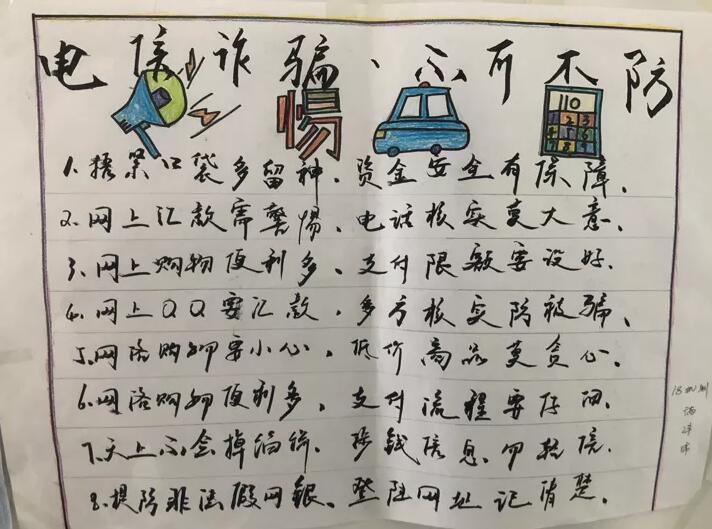 电信诈骗、不可不防
惕
110
1 2 3
4 5 6
7 8 9
1、捂紧口袋多留神、资金安全有保障、
2、网上汇款需警惕、电话核实莫大意、
3、网上购物便利多、支付限额要设好、
4、网上QQ要汇款、多方核实防被骗、
5、网络购物要小心、低价商品莫贪心、
6、网络购物便利多、支付流程要仔细、
7、天上不会掉馅饼、挣钱信息勿轻信、
8、提防非法假网银、登陆网址记清楚、